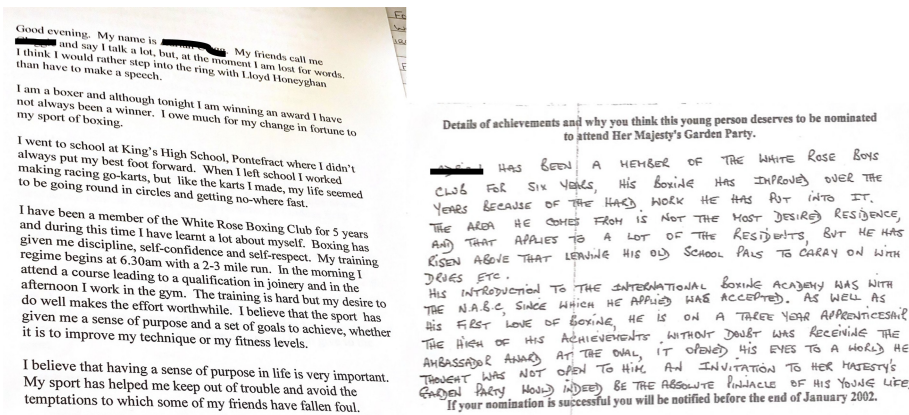 Good evening. My name is . My friends call me
and say I talk a lot, but, at the moment I am lost for words.
I think I would rather step into the ring with Lloyd Honeyghan
than have to make a speech.
I am a boxer and although tonight I am winning an award I have
not always been a winner. I owe much for my change in fortune to
my sport of boxing.
I went to school at King's High School, Pontefract where I didn't
always put my best foot forward. When I left school I worked
making racing go-karts, but like the karts I made, my life seemed
to be going round in circles and getting no-where fast.
I have been a member of the White Rose Boxing Club for 5 years
and during this time I have learnt a lot about myself. Boxing has
given me discipline, self-confidence and self-respect. My training
regime begins at 6.30am with a 2-3 mile run. In the morning I
attend a course leading to a qualification in joinery and in the
afternoon I work in the gym. The training is hard but my desire to
do well makes the effort worthwhile. I believe that the sport has
given me a sense of purpose and a set of goals to achieve, whether
it is to improve my technique or my fitness levels.
I believe that having a sense of purpose in life is very important.
My sport has helped me keep out of trouble and avoid the
temptations to which some of my friends have fallen foul.
Details of achievements and why you think this young person deserves to be nominated
to attend Her Majesty's Garden Party.
HAS BEEN A MEMBER OF THE WHITE ROSE BOYS
CLUB FOR SIX YEARS, HIS BOXING HAS IMPROVED OVER THE
YEARS BECAUSE OF THE HARD WORK HE HAS PUT INTO IT.
THE AREA HE COMES FROM IS NOT THE MOST DESIRED RESIDENCE,
AND THAT APPLIES TO A LOT OF THE RESIDENTS, BUT HE HAS
RISEN ABOVE THAT LEAVING HIS OLD SCHOOL PALS TO CARAY ON WITH
DRUGS ETC.
HIS INTRODUCTION TO THE INTERNATIONAL BOXING ACADEMY WAS WITH
THE N.A.B.C, SINCE WHICH HE APPLIED WAS ACCEPTED. AS WELL AS
HIS FIRST LOVE OF BOXING, HE IS ON A THREE YEAR APPRENTICESHIP
THE HIGH OF HIS ACHIEVEMENTS WITHOUT DOUBT WAS RECEIVING THE
AMBASSADOR AWARD AT THE OVAL, IT OPENED HIS EYES TO A WORLD HE
THOUGHT WAS NOT OPEN TO HIM AN INVITATION TO HER MAJESTY'S
GARDEN PARTY WOULD INDEED BE THE ABSOLUTE PINNACLE OF HIS YOUNG LIFE
If your nomination is successful you will be notified before the end of January 2002.